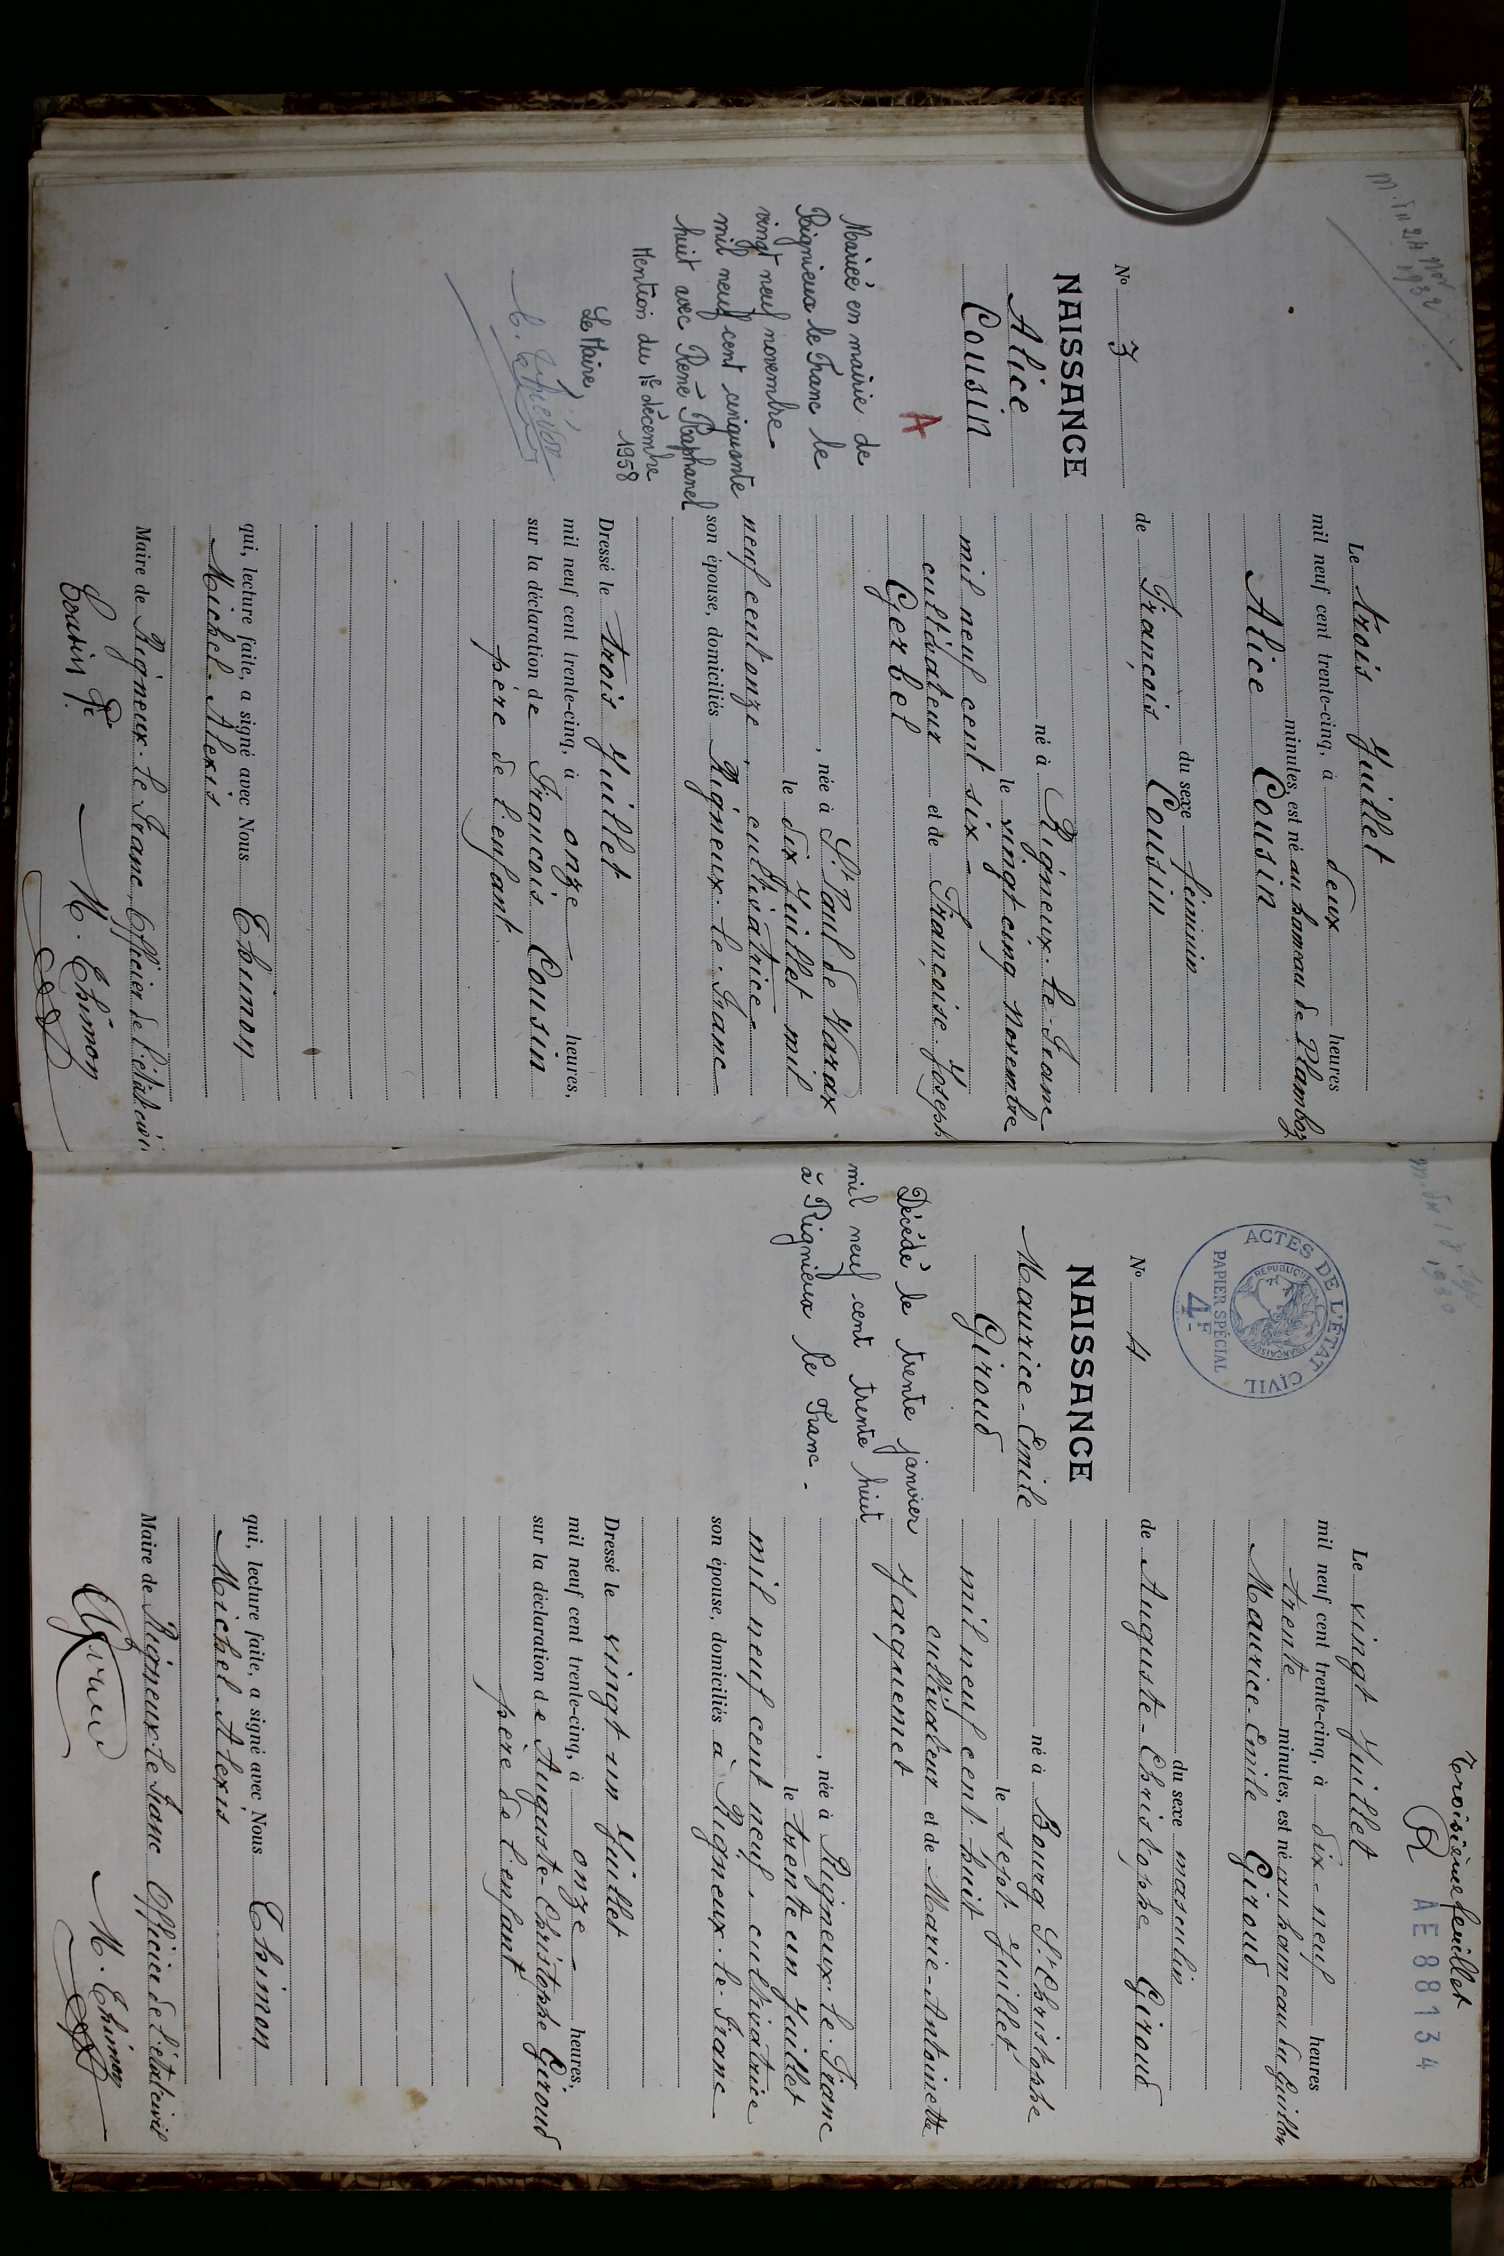 N° 3
NAISSANCE
Alice
Cousin
A
Mariée en mairie de
Rignieux le Franc le
vingt neuf novembre
mil neuf cent cinquante
huit avec René Raphanel
Mention du 1er décembre
1958
Le Maire,
Le trois Juillet
mil neuf cent trente-cinq, à deux heures
minutes, est né au hameau de Plamboz
Alice Cousin
du sexe féminin
de François Cousin
né à Rigneux-le-Franc
le vingt cinq Novembre
mil neuf cent six -
cultivateur et de Françoise-Joseph
Gerbel
, née à St Paul de Varax
le dix Juillet mil
neuf cent onze, cultivatrice
son épouse, domiciliés Rigneux-le-Franc
Dressé le trois Juillet
mil neuf cent trente-cinq, à onze heures,
sur la déclaration de François Cousin
père de l'enfant
qui, lecture faite, a signé avec Nous Thimon
Michel-Alexis
Maire de Rigneux-le-Franc, Officier de l'état civil
Cousin F. M. Thimon
Troisième feuillet
AE 88134
ACTES DE L'ÉTAT CIVIL
RÉPUBLIQUE FRANÇAISE
PAPIER SPÉCIAL
4F
N° 4
NAISSANCE
Maurice-Emile
Giroud
Décédé le trente janvier
mil neuf cent trente huit
à Rignieux le Franc.
Le vingt Juillet
mil neuf cent trente-cinq, à dix-neuf heures
trente minutes, est né au hameau du Guillon
Maurice-Emile Giroud
du sexe masculin
de Auguste-Christophe Giroud
né à Bourg St Christophe
le sept Juillet
mil neuf cent huit
cultivateur et de Marie-Antoinette
Jacquemet
, née à Rigneux-le-Franc
le trente un Juillet
mil neuf cent neuf, cultivatrice
son épouse, domiciliés à Rigneux-le-Franc
Dressé le vingt un Juillet
mil neuf cent trente-cinq, à onze heures,
sur la déclaration de Auguste-Christophe Giroud
père de l'enfant
qui, lecture faite, a signé avec Nous Thimon
Michel-Alexis
Maire de Rigneux-le-Franc Officier de l'état civil
M. Thimon